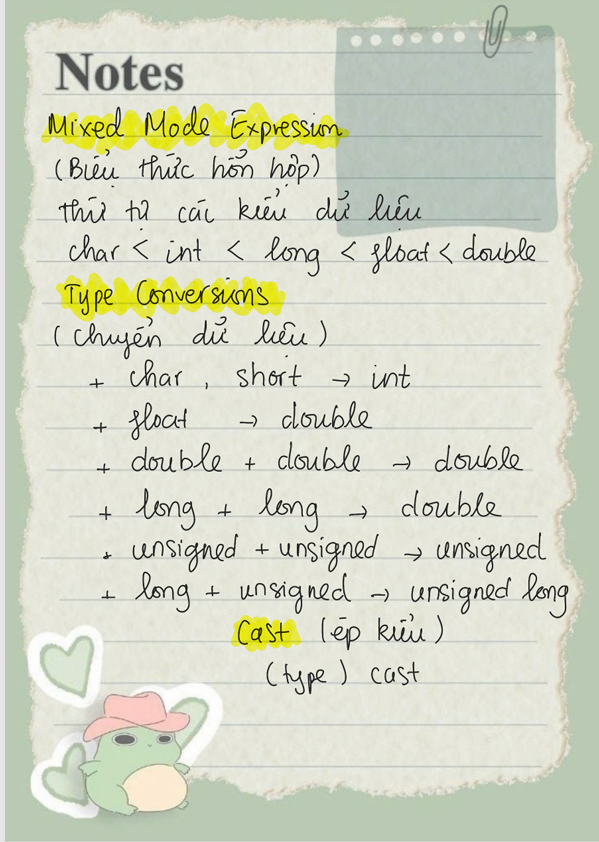 Notes
Mixed Mode Expression
(Biểu thức hỗn hợp)
Thứ tự các kiểu dữ liệu
char < int < long < float < double
Type Conversions
(chuyển dữ liệu)
+ char , short → int
+ float → double
+ double + double → double
+ long + long → double
+ unsigned + unsigned → unsigned
+ long + unsigned → unsigned long
Cast (ép kiểu)
(type) cast